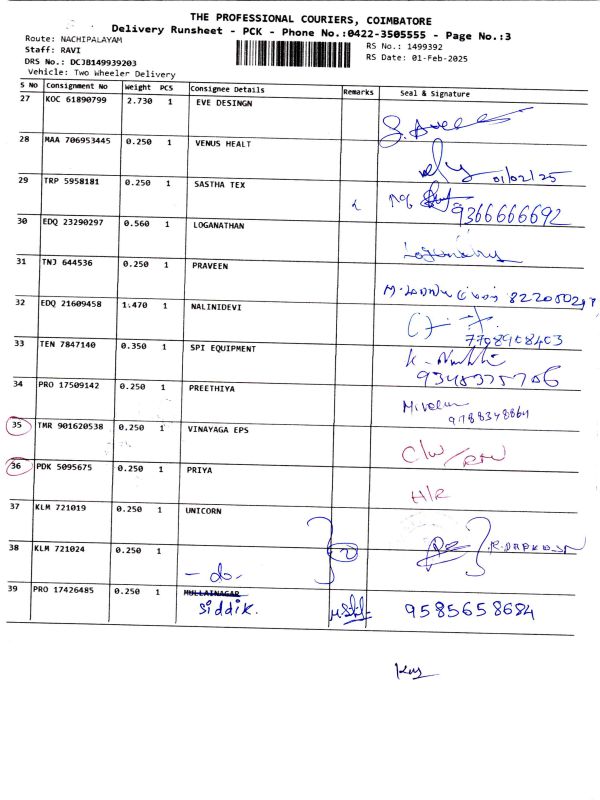 THE PROFESSIONAL COURIERS, COIMBATORE
Delivery Runsheet - PCK - Phone No.:0422-3505555 - Page No.:3
Route: NACHIPALAYAM
RS No.: 1499392
Staff: RAVI
RS Date: 01-Feb-2025
DRS No.: DCJB149939203
Vehicle: Two Wheeler Delivery
S No Consignment No Weight PCS Consignee Details Remarks Seal & Signature
27 KOC 61890799 2.730 1 EVE DESINGN
28 MAA 706953445 0.250 1 VENUS HEALT
01/02/25
29 TRP 5958181 0.250 1 SASTHA TEX
9366666692
30 EDQ 23290297 0.560 1 LOGANATHAN
31 TNJ 644536 0.250 1 PRAVEEN
32 EDQ 21609458 1.470 1 NALINIDEVI
7708908403
33 TEN 7847140 0.350 1 SPI EQUIPMENT
34 PRO 17509142 0.250 1 PREETHIYA
9788348864
35 TMR 901620538 0.250 1 VINAYAGA EPS
36 PDK 5095675 0.250 1 PRIYA
H/R
37 KLM 721019 0.250 1 UNICORN
38 KLM 721024 0.250 1 - do - 2
39 PRO 17426485 0.250 1 MULLAINAGAR
Siddik. 9585658684